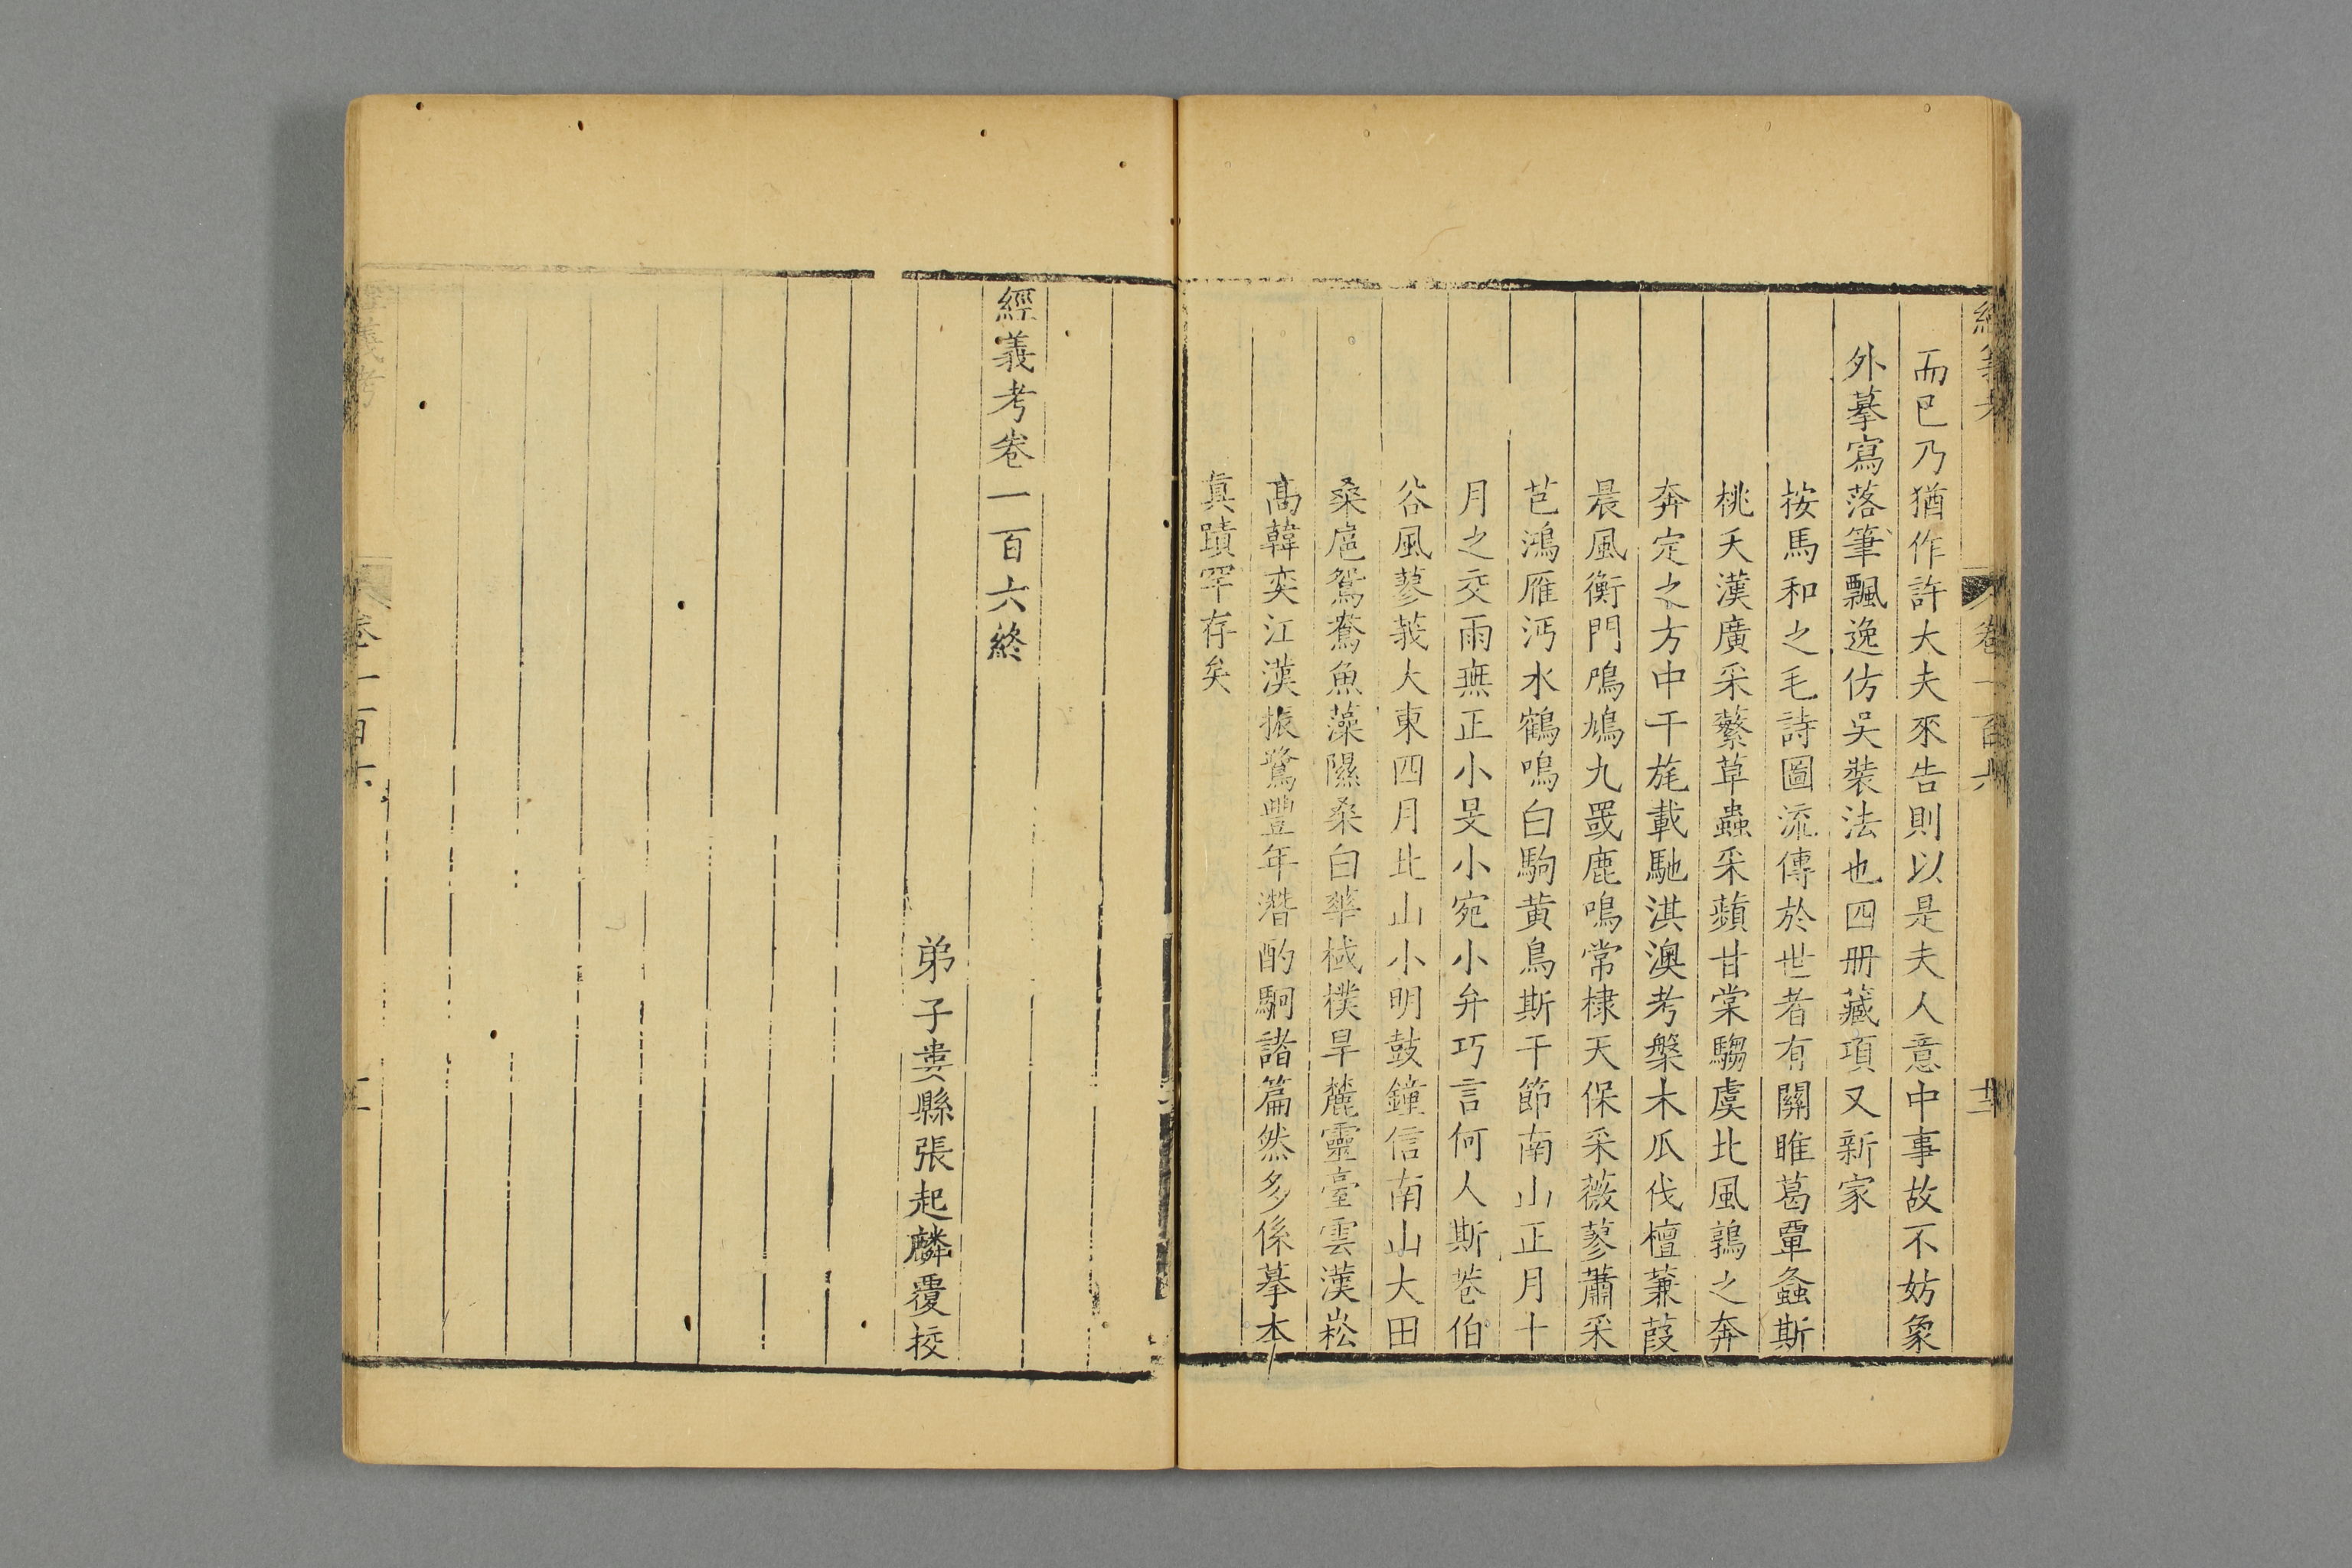 經義考
卷一百六
十二
而已乃猶作許大夫來告則以是夫人意中事故不妨象
外摹寫落筆飄逸仿吳裝法也四册藏項又新家
按馬和之毛詩圖流傳於世者有關雎葛覃螽斯
桃夭漢廣采蘩草蟲采蘋甘棠騶虞北風鶉之奔
奔定之方中干旄載馳淇澳考槃木瓜伐檀蒹葭
晨風衡門鳲鳩九罭鹿鳴常棣天保采薇蓼蕭采
芑鴻雁沔水鶴鳴白駒黃鳥斯干節南山正月十
月之交雨無正小旻小宛小弁巧言何人斯巷伯
谷風蓼莪大東四月北山小明鼓鐘信南山大田
桑扈鴛鴦魚藻隰桑白華棫樸旱麓靈臺雲漢崧
高韓奕江漢振鷺豐年潛酌駉諸篇然多係摹本
真蹟罕存矣
經義考卷一百六終
弟子婁縣張起麟覆挍
經義考
卷一百六